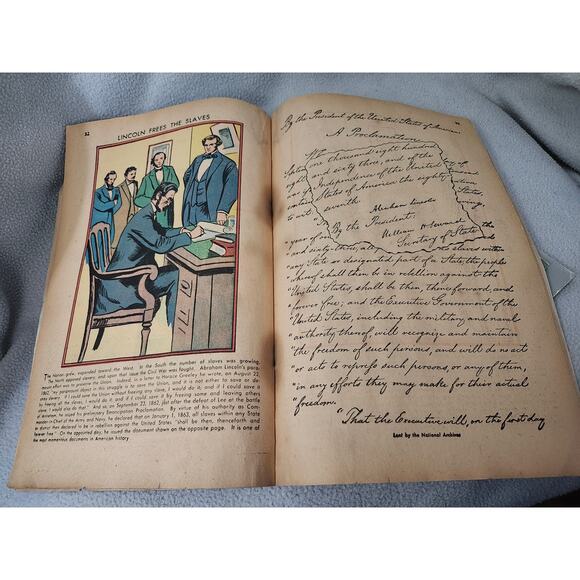 32
LINCOLN FREES THE SLAVES
The Nation grew, expanded toward the West. In the South the number of slaves was growing.
The North opposed slavery, and upon that issue the Civil War was fought. Abraham Lincoln's para-
mount effort was to preserve the Union. Indeed, in a letter to Horace Greeley he wrote, on August 22,
1862, "my paramount object in this struggle is to save the Union, and it is not either to save or de-
stroy slavery. If I could save the Union without freeing any slave, I would do it; and if I could save it
by freeing all the slaves, I would do it; and if I could save it by freeing some and leaving others
alone I would also do that." And on September 22, 1862, just after the defeat of Lee at the battle
of Antietam, he issued his preliminary Emancipation Proclamation. By virtue of his authority as Com-
mander in Chief of the Army and Navy, he declared that on January 1, 1863, all slaves within any State
or district then declared to be in rebellion against the United States "shall be then, thenceforth and
forever free." On the appointed day, he issued the document shown on the opposite page. It is one of
the most momentous documents in American history
By the President of the United States of America:
A Proclamation.
Whe
tata one thousand eight hundred
eight and sixty three, and of the
was Independence of the United
contain States of America the eighty
to wit seventh.
Abraham Lincoln
By the President:
William H. Seward
Secretary of State
day of
States
"and sixty-three, all to slaves within
"any State or designated part of a State, the people
"whereof shall then be in rebellion against the
United States, shall be then, thenceforward, and
forever free; and the Executive Government of the
"United States, including the military and naval
"authority thereof, will recognize and maintain
"the freedom of such persons, and will do no act
"or acts to repress such persons, or any of them,
"in any efforts they may make for their actual
"freedom.
"That the Executive will, on the first day
Lent by the National Archives